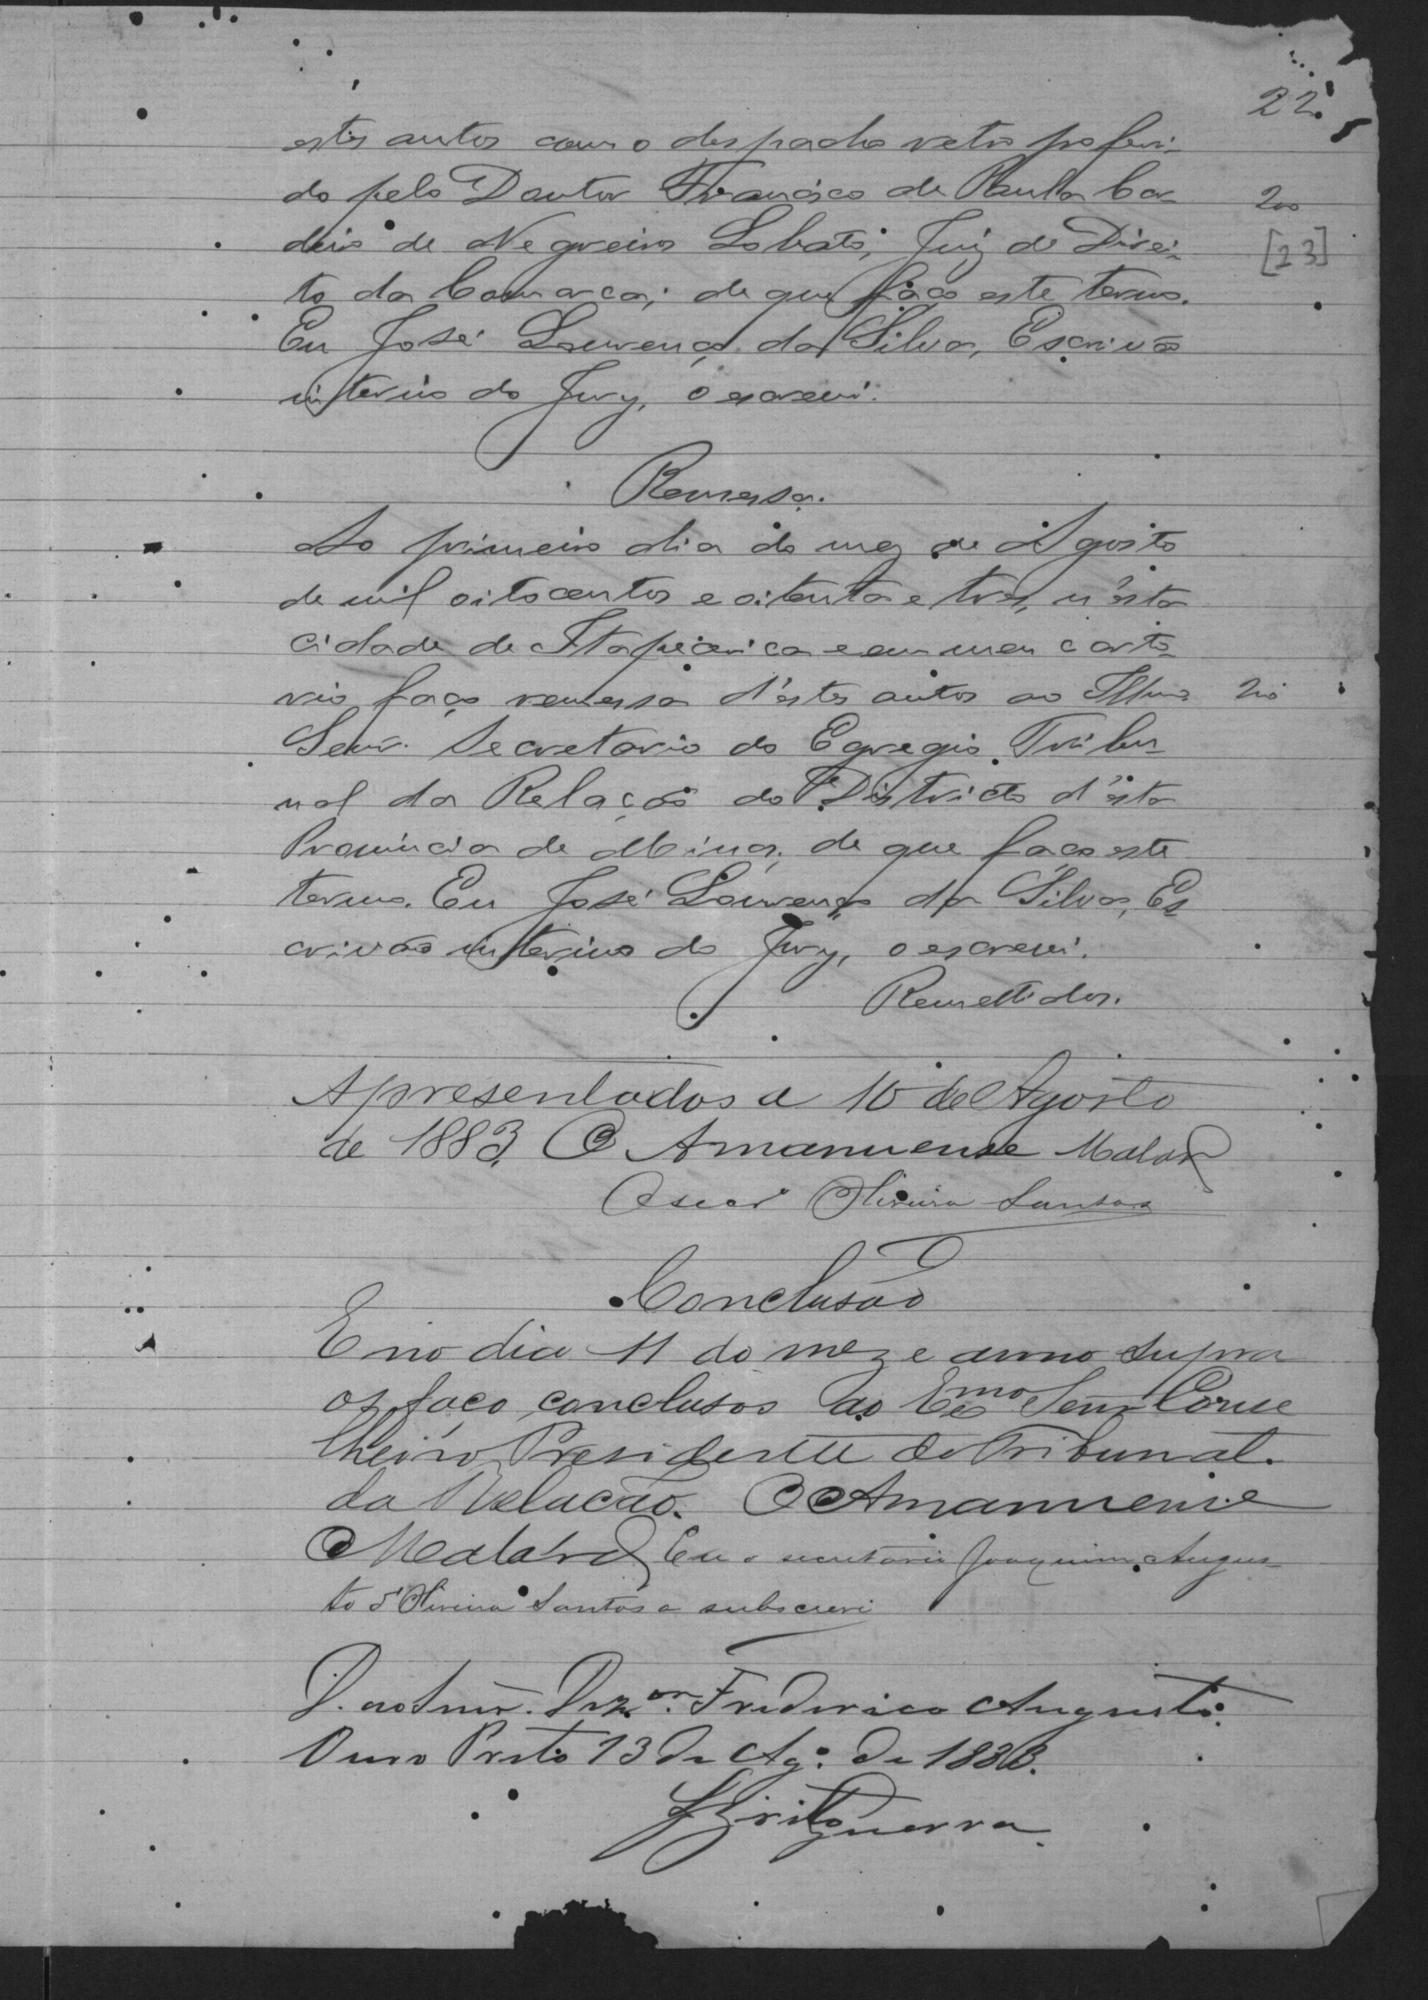 22.
estes autos com o despacho retro proferi-
do pelo Doutor Francisco de Paula Cor-
deiro de Negreiros Lobato, Juiz de Direi-
200
[23]
to da Comarca; de que faço este termo.
Eu José Lourenço da Silva, Escrivão
interino do Jury, o escrevi.
Remessa.
Ao primeiro dia do mez de Agosto
de mil oitocentos e oitenta e tres, n'esta
cidade de Itapecerica e em meu carto-
rio faço remessa d'estes autos ao Illmo
200
Senr. Secretario do Egregio Tribu-
nal da Relação do Districto d'esta
Provincia de Minas; de que faço este
termo. Eu José Lourenço da Silva, Es
crivão interino do Jury, o escrevi.
Remettidos.
Apresentados a 10 de Agosto
de 1883. O Amanuense Malard
Oliveira Santos
Conclusão
E no dia 11 do mez e anno supra
os faço conclusos ao Exmo Senr Conse
lheiro Presidente do Tribunal
da Relação. O Amanuense
Malard Eu o secretario Joaquim Augus-
to d'Oliveira Santos o subscrevi
D. ao Senr. Dezor. Frederico Augusto.
Ouro Preto 13 de Agº. de 1883.
L Brito Guerra.